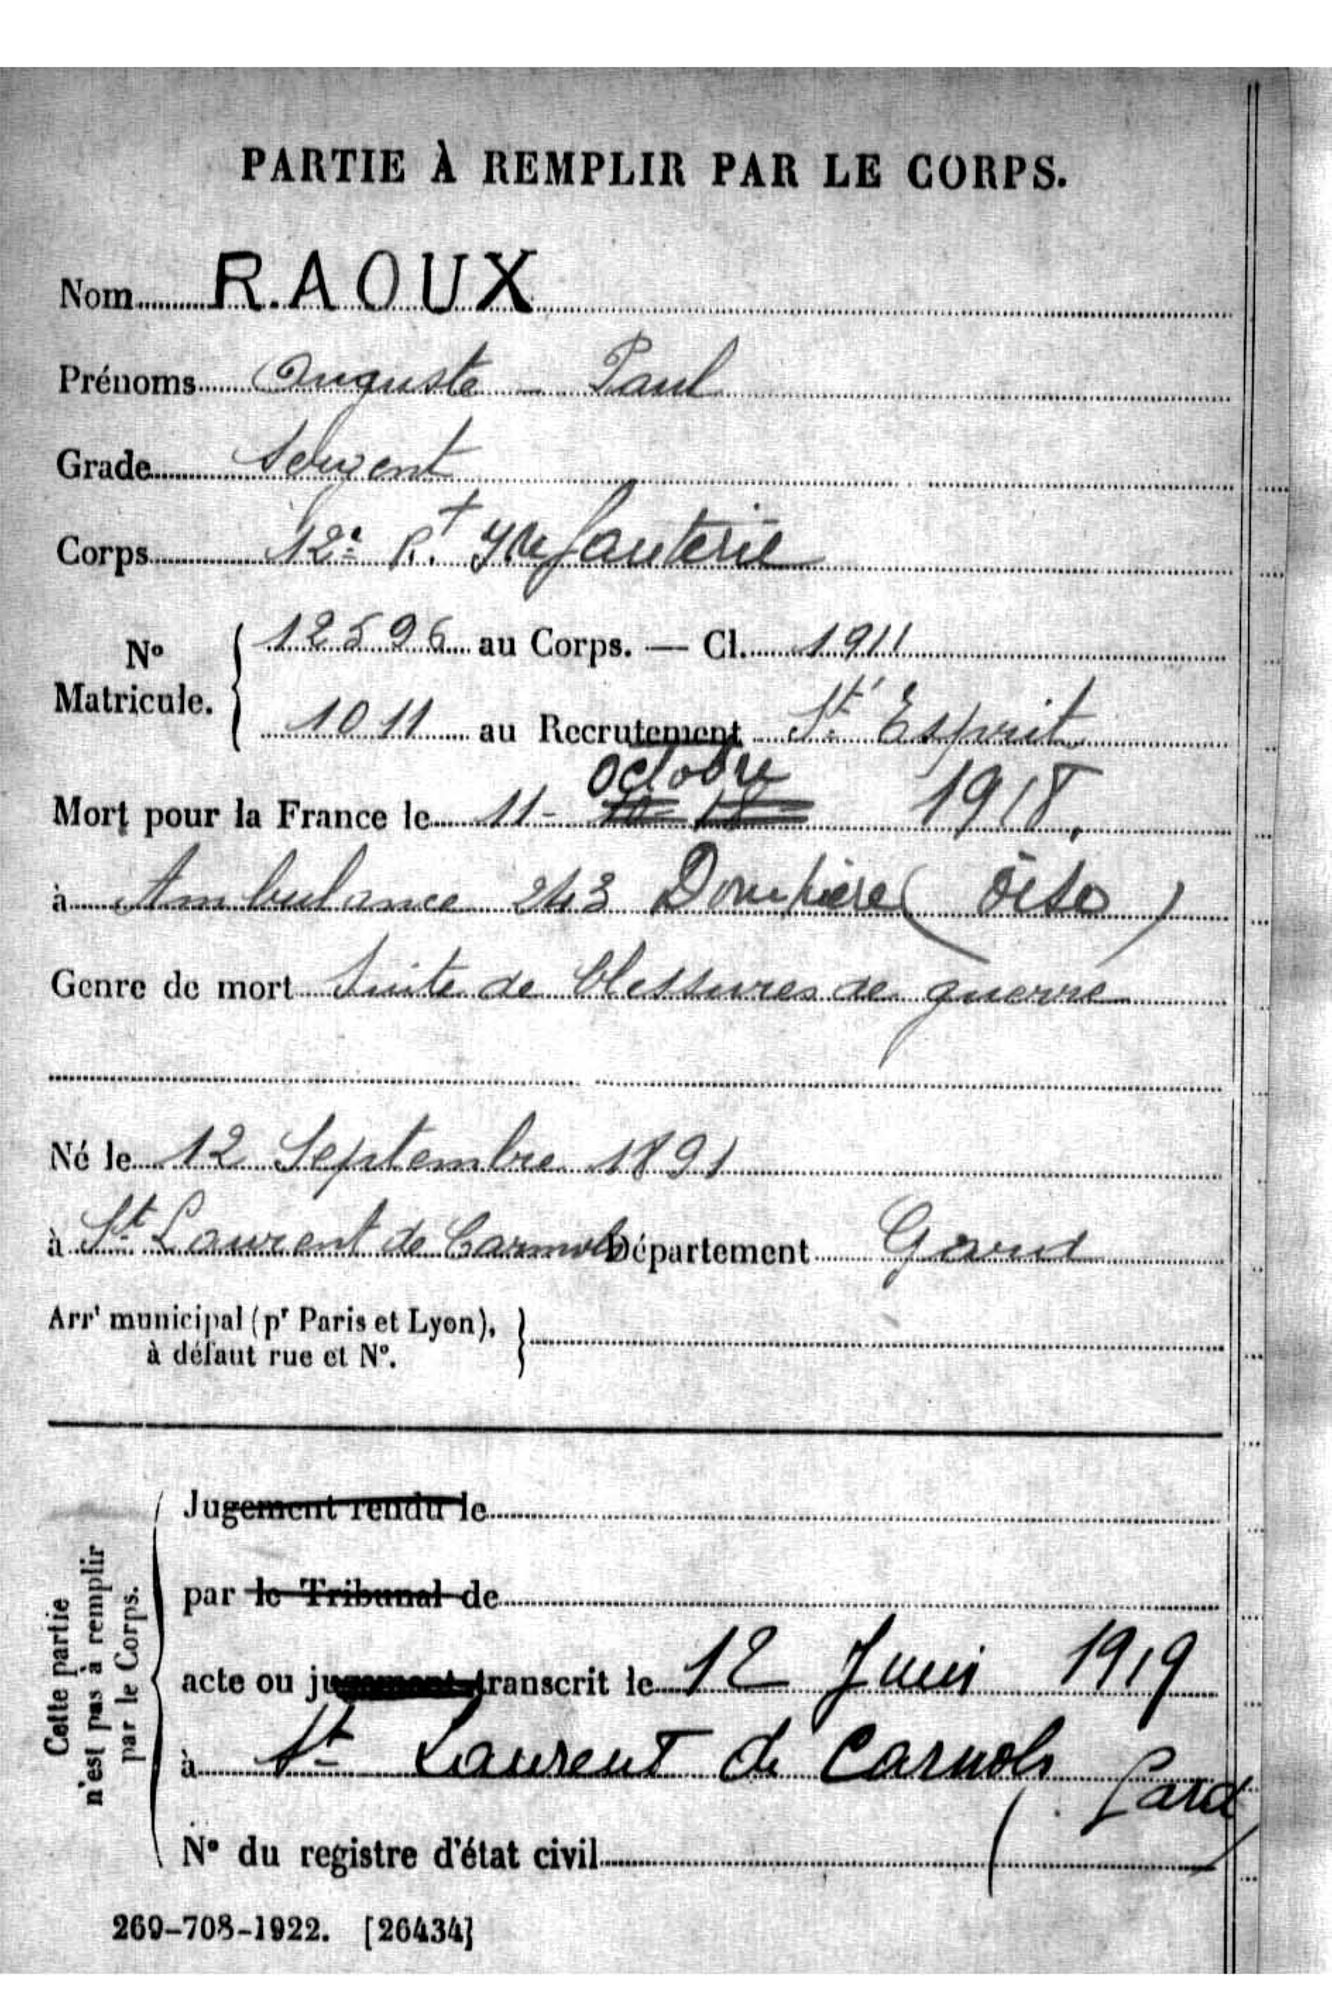 PARTIE À REMPLIR PAR LE CORPS.
Nom RAOUX
Prénoms Auguste - Paul
Grade Sergent
Corps 12e Rt Infanterie
No Matricule. { 12596 au Corps. — Cl. 1911
1011 au Recrutement St Esprit
Mort pour la France le 11- octobre 1918.
à Ambulance 243 Dompière (Oise)
Genre de mort Suite de blessures de guerre
Né le 12 Septembre 1891
à St Laurent de Carnols Département Gard
Arrt municipal (pr Paris et Lyon), }
à défaut rue et No.
Cette partie
n'est pas à remplir
par le Corps.
Jugement rendu le
par le Tribunal de
acte ou jugement transcrit le 12 Juin 1919
à St Laurent de Carnols
(Gard)
No du registre d'état civil
269-708-1922. [26434]